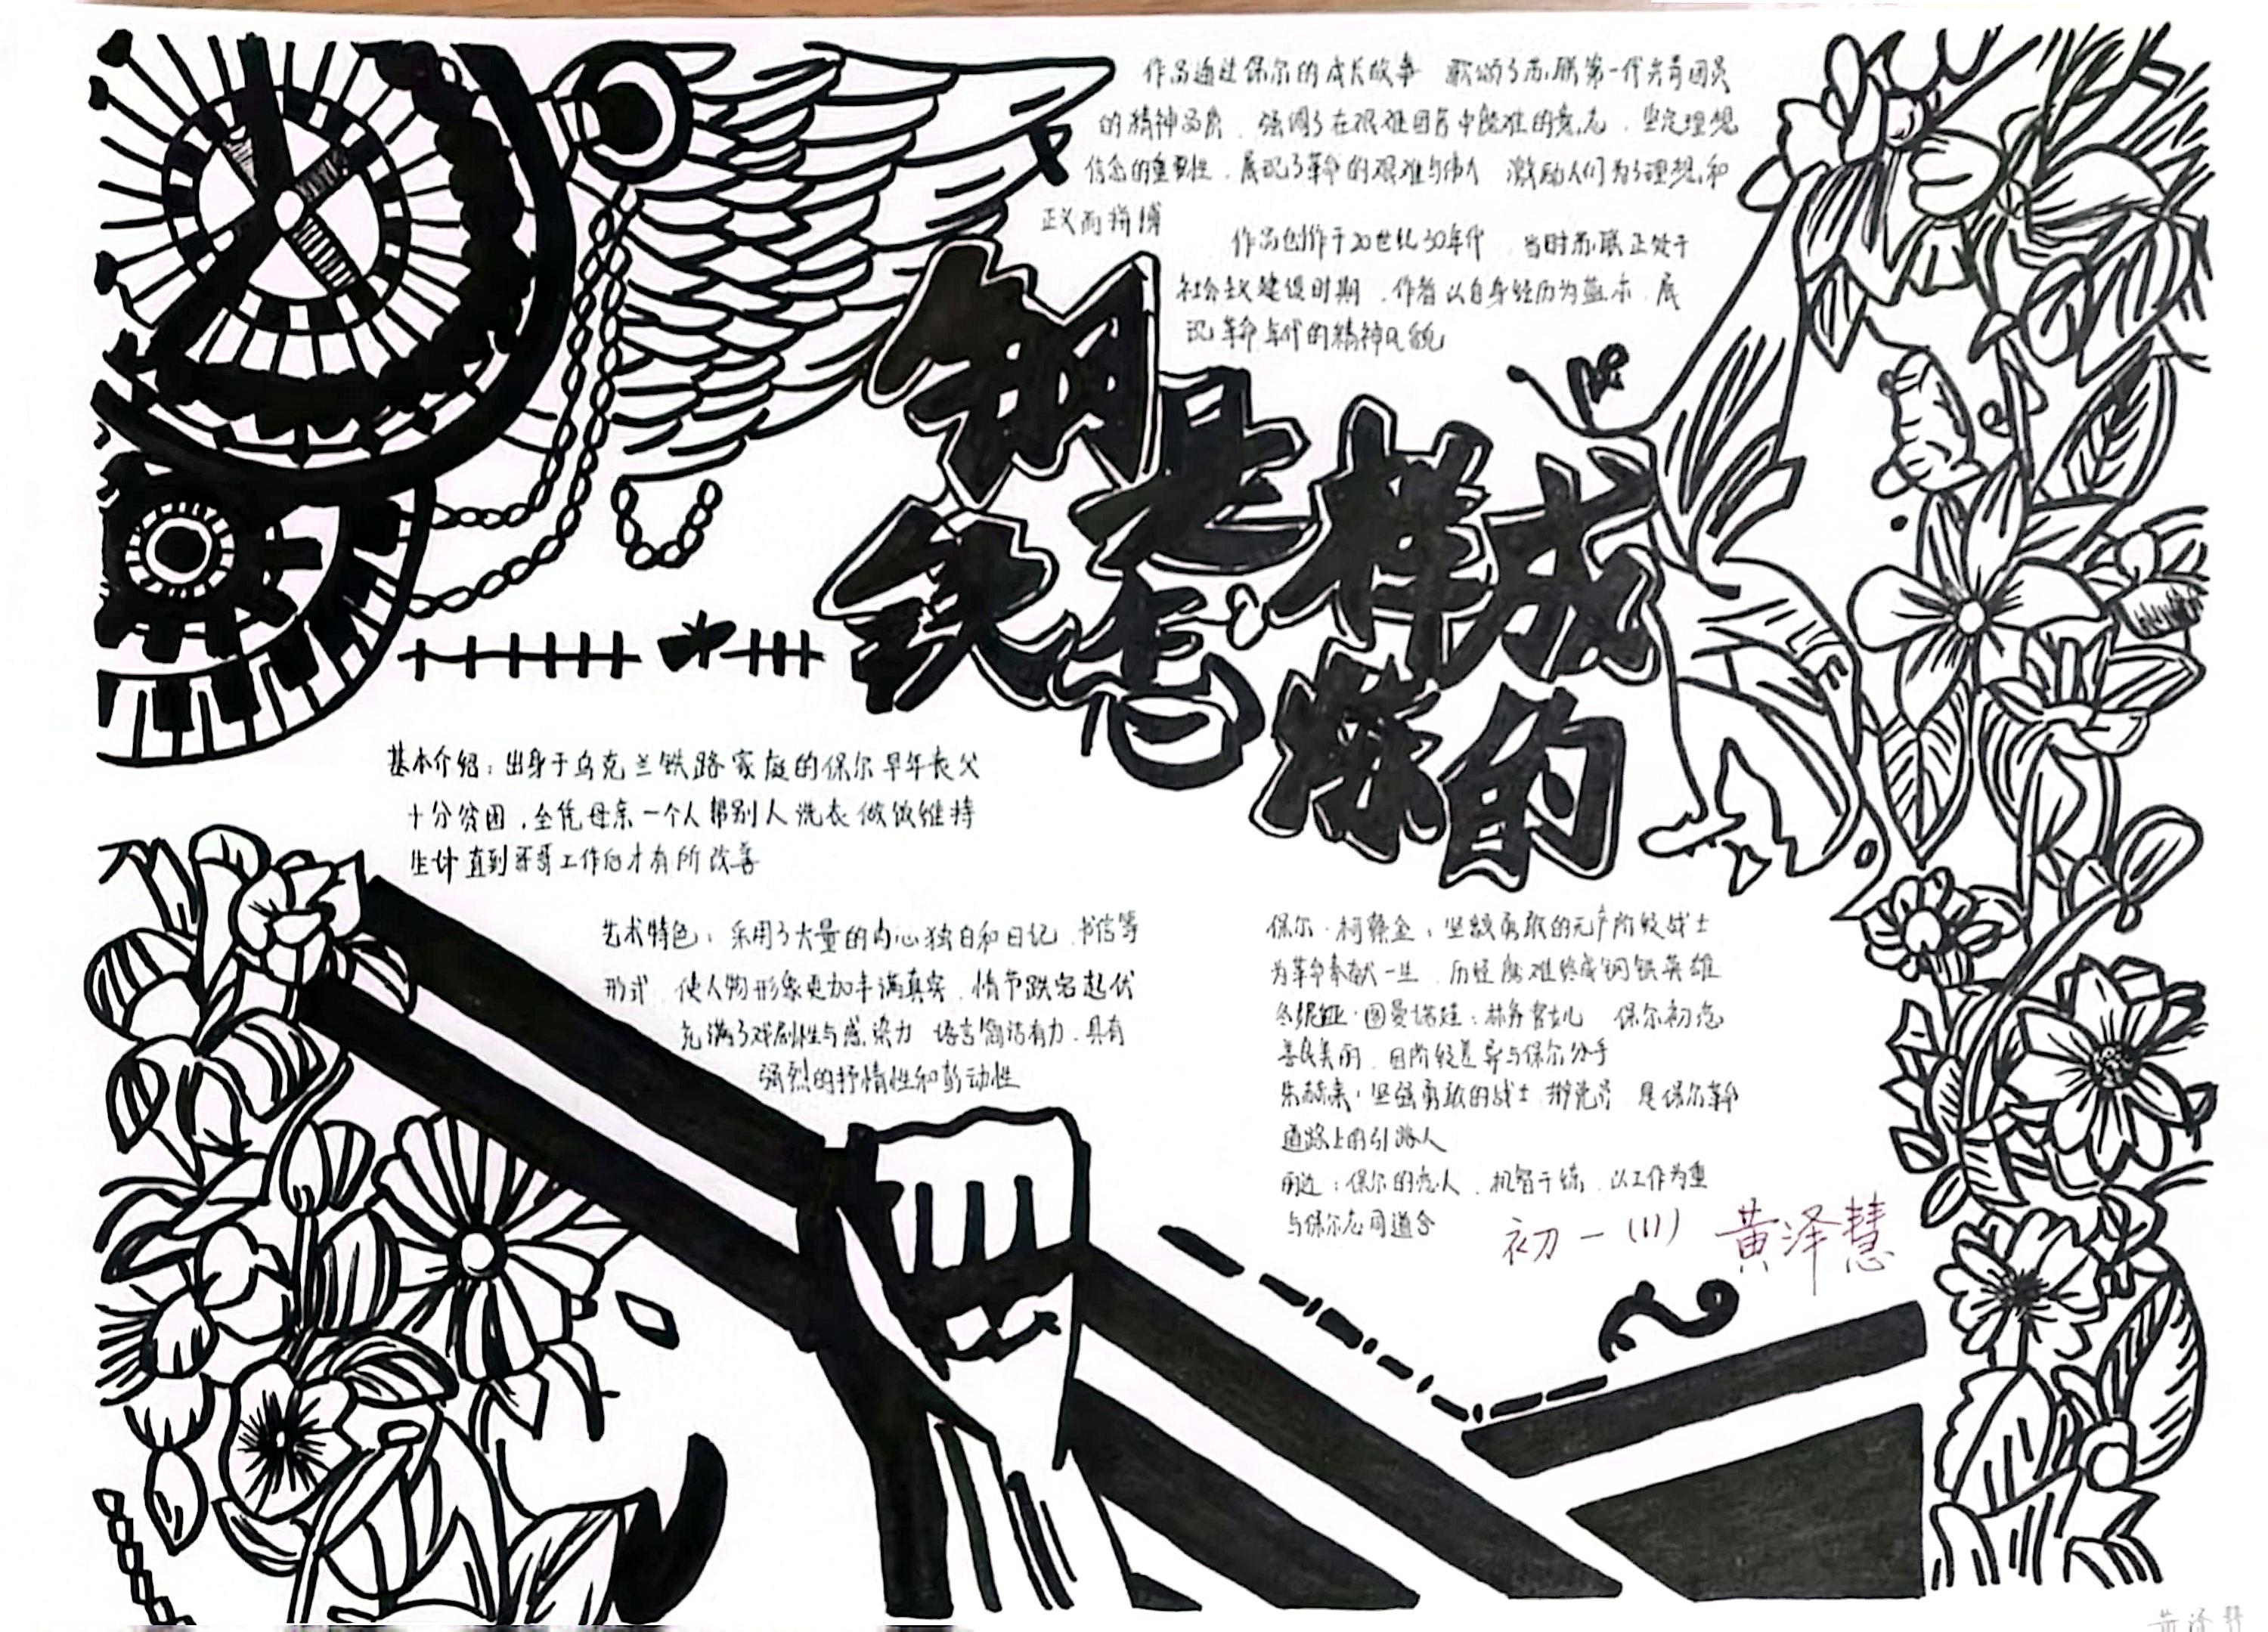 作品通过保尔的成长故事 歌颂了苏联第一代共青团员
的精神品质，强调了在艰难困苦中磨难的意志，坚定理想
信念的重要性，展现了革命的艰难与伟大 激励人们为了理想和
正义而拼搏
作品创作于20世纪30年代，当时苏联正处于
社会主义建设时期，作者以自身经历为蓝本，展
现革命年代的精神风貌
钢铁是怎样炼成的
基本介绍：出身于乌克兰铁路家庭的保尔早年丧父
十分贫困，全凭母亲一个人帮别人洗衣做饭维持
生计 直到哥哥工作后才有所改善
艺术特色：采用了大量的内心独白和日记、书信等
形式，使人物形象更加丰满真实，情节跌宕起伏
充满了戏剧性与感染力 语言简洁有力，具有
强烈的抒情性和
保尔·柯察金：坚毅勇敢的无产阶级战士
为革命奉献一生，历经磨难终成钢铁英雄
冬妮亚·图曼诺娃：林务官女儿 保尔初恋
善良美丽，因阶级差异与保尔分手
朱赫来：坚强勇敢的战士 共产党员 是保尔革命
道路上的引路人
丽达：保尔的恋人，机智干练，以工作为重
与保尔志同道合
初一(11) 黄泽慧
黄泽慧